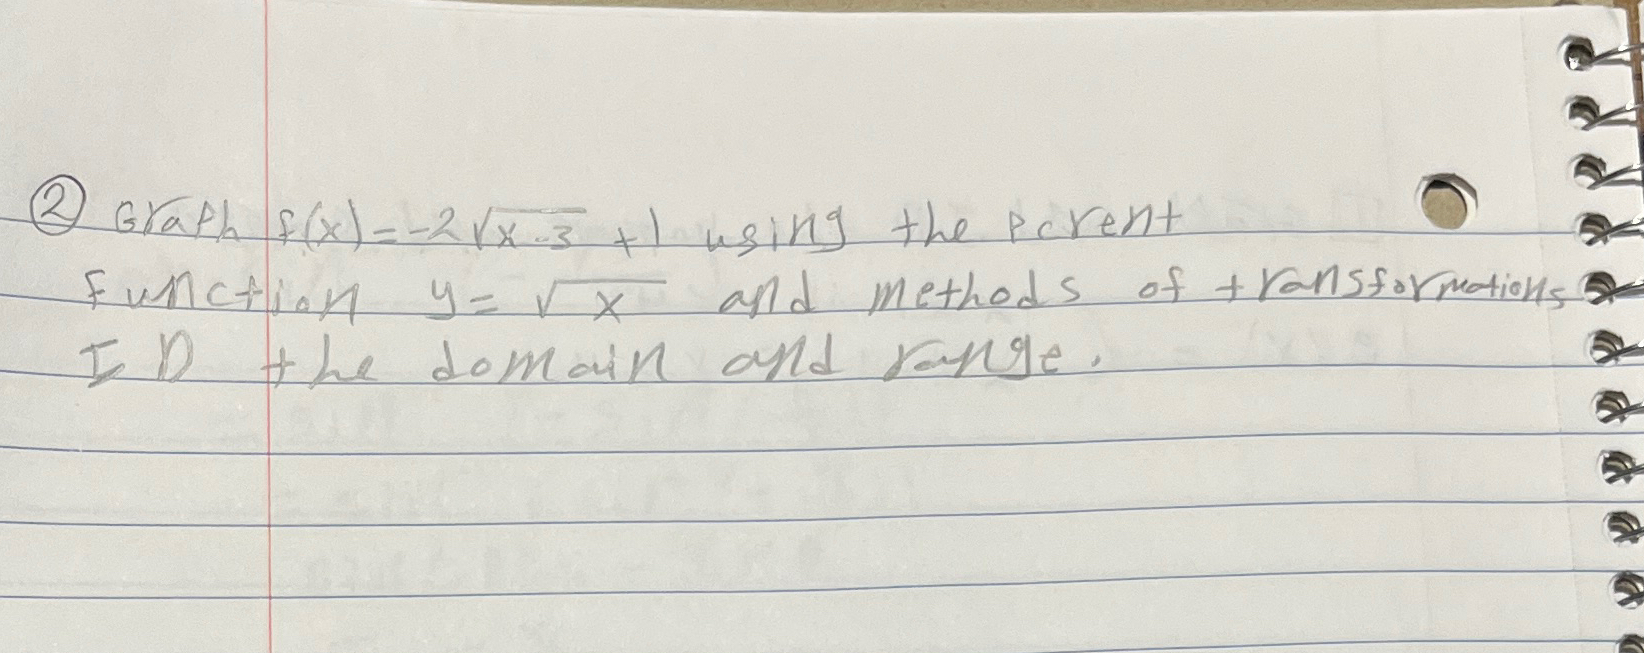 ② Graph f(x)=-2√x-3 +1 using the parent
function y= √x and methods of transformations
ID the domain and range.